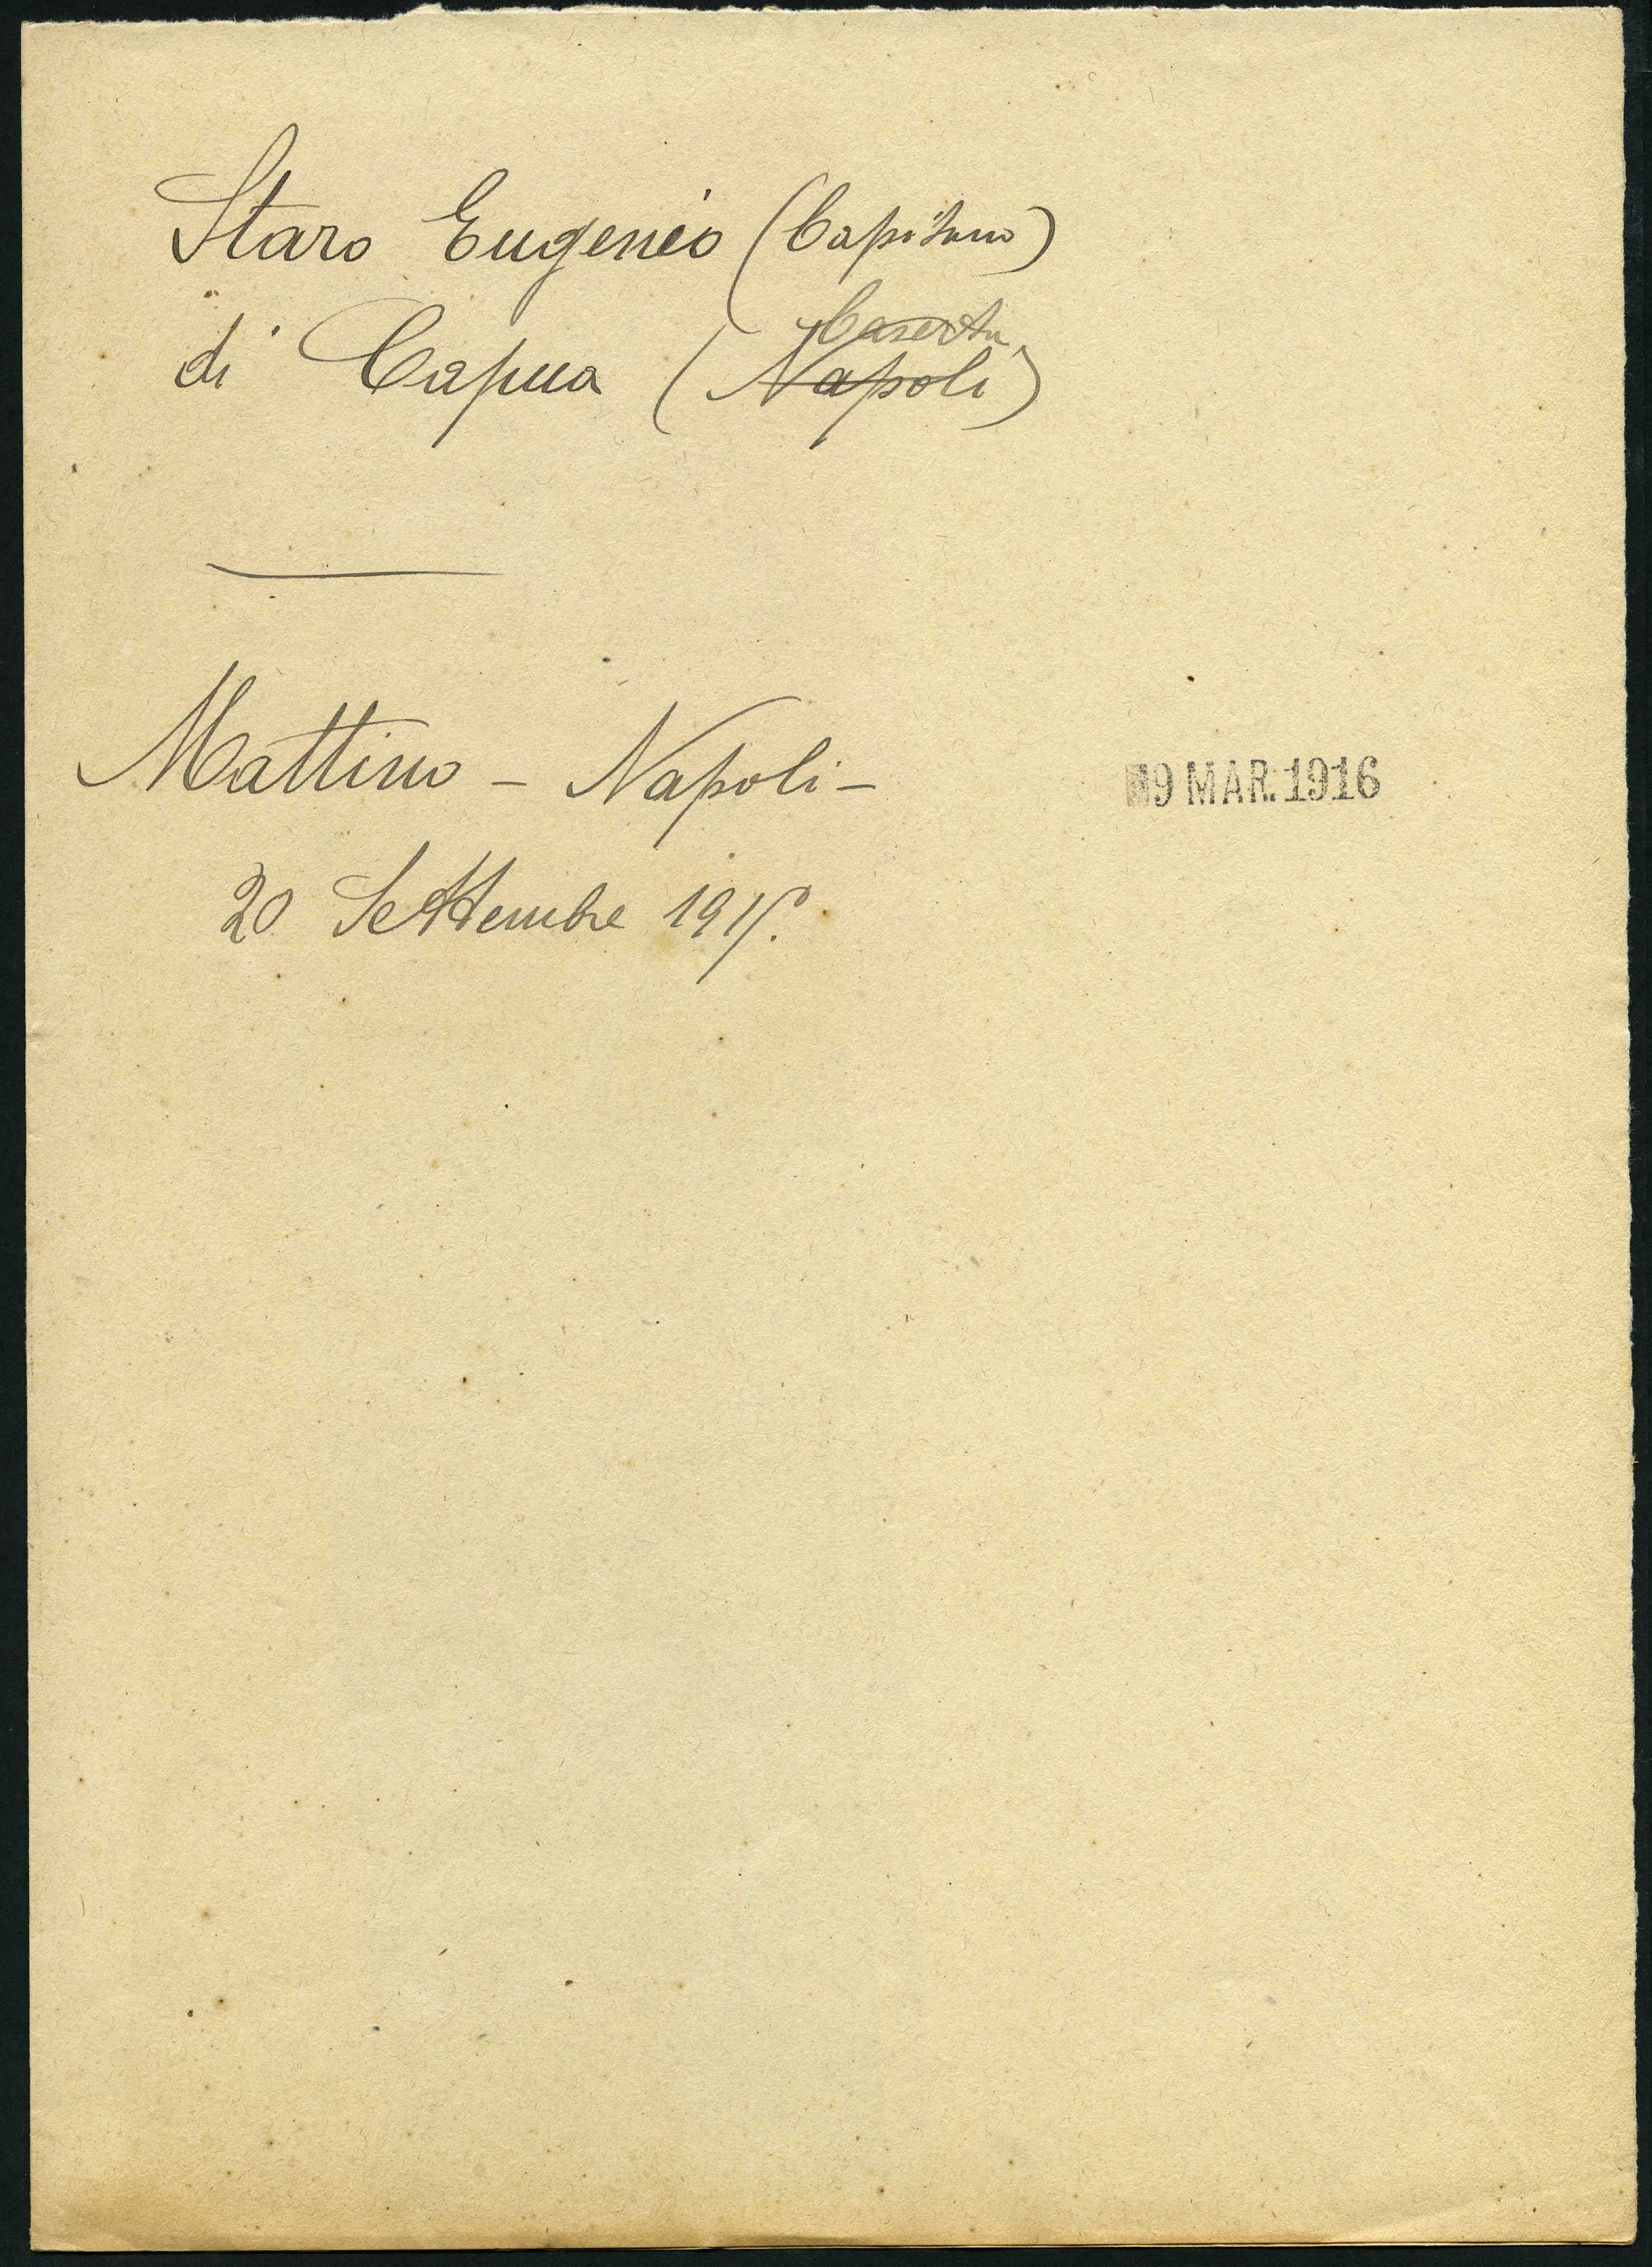 Staro Eugenio (Capitano)
di Capua (Napoli)
Caserta
Mattino - Napoli -
9 MAR. 1916
20 Settembre 1915.